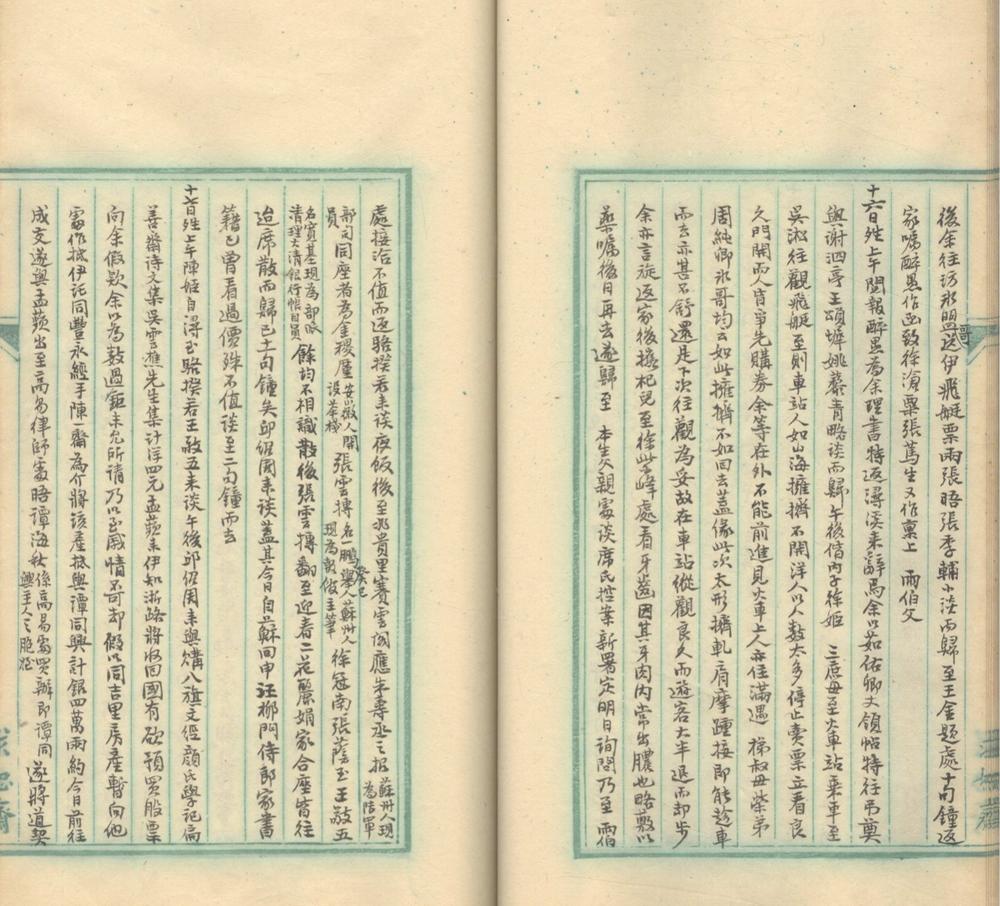 後余往訪永盟送伊飛艇票兩張晤張季輔小談而歸至王金題處十句鐘返
哥
家囑醉墨作函致徐滄粟張篤生又作稟上 雨伯父
十六日姓上午閱報醉墨為余理書特返潯溪來辭焉余以茹佑卿丈領帖特往弔奠
與謝泗亭王頌墀姚藜青略談而歸午後偕內子徐姬 三庶母至火車站乘車至
吳淞往觀飛艇至則車站人如山海擁擠不開洋人以人數太多停止賣票立看良
久門開而人皆爭先購券余等在外不能前進見火車上人亦佳滿遇 梯叔母榮弟
周純卿永哥均云如此擁擠不如回去蓋緣此次太形攝軋肩摩踵接即能趁車
而去亦甚不舒還是下次往觀為妥故在車站縱觀良久而遊客大半退而却步
余亦言旋返家後攜杞兒至徐峰處看牙齒因其牙肉內常出膿也略敷以
藥囑後日再去遂歸至 本生父親處談席氏控案新署定明日詢問乃至 雨伯
處接洽不值而返駱揆若來談夜飯後至兆貴里賽雲閣應朱壽丞之招
蘇州人現
為陸軍
部司
員
同座者為金稷塵
安徽人開
設茶棧
張雲摶
名一鵬癸巳舉人蘇州人
現為主筆
徐冠南張蔭玉王敬五
名寶基現為部派
清理大清銀行帳目員
餘均不相識散後張雲摶翻至迎春二花麗娟家合座皆往
迨席散而歸已十二句鐘矣邱紹周來談蓋其今日自蘇回申汪柳門侍郎家書
籍已曾看過價殊不值談至二句鐘而去
十七日姓上午陳姬自潯至駱揆若王敬五來談午後邱紹周來與購八旗文經顏氏學記偏
善齋詩文集吳雲樵先生集計洋四元孟蘋來伊知浙路將收回國有欲預買股票
向余假款余以為數過鉅未允所請乃以至戚情不可却假以同吉里房產暫向他
處作抵伊託同豐永經手陳一齋為介將該產抵與譚同興計銀四萬兩約今日前往
成交遂與孟蘋出至高易律師處晤譚海秋
係高易處買辦即譚同
興主人之胞侄
遂將道契